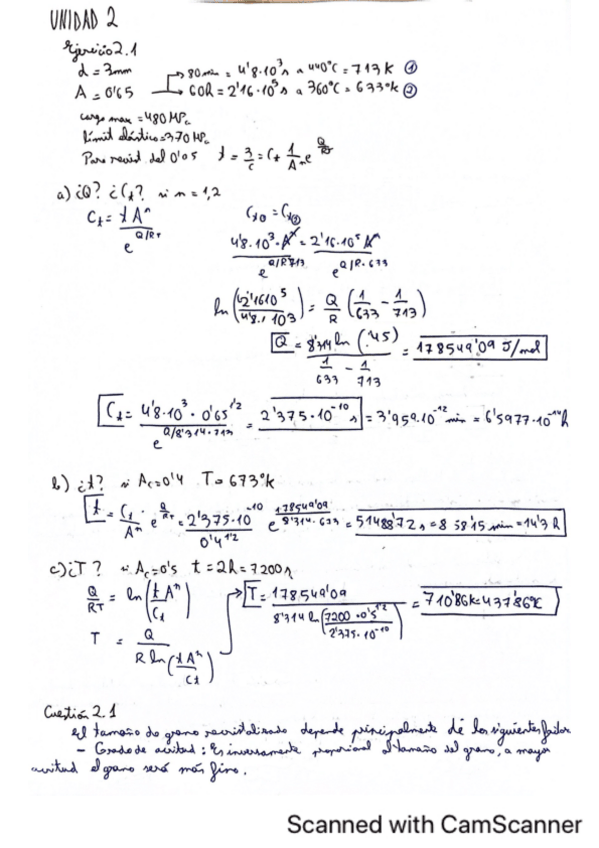 UNIDAD 2
Ejercicio 2.1
d = 3mm
A = 0'65
80 min = 4'8·10³ s a 440°C = 713 K ①
60h = 2'16·10⁵ s a 360°C = 633°K ②
carga max = 480 MPa
límit elástico = 370 MPa
Para recrist. del 0'05 t = 3/c = Ct 1/Aⁿ e^(Q/RT)
a) ¿Q? ¿Ct? si n = 1,2
Ct = t Aⁿ / e^(Q/RT) Ct① = Ct②
4'8·10³·Aⁿ / e^(Q/R·713) = 2'16·10⁵ Aⁿ / e^(Q/R·633)
ln (2'16·10⁵ / 4'8·10³) = Q/R (1/633 - 1/713)
Q = 8'314 ln (45) / (1/633 - 1/713) = 178549'09 J/mol
Ct = 4'8·10³ · 0'65^1'2 / e^(Q/8'314·713) = 2'375·10⁻¹⁰ s = 3'959·10⁻¹² min = 6'5977·10⁻¹⁴ h
b) ¿t? si Ac = 0'4 T = 673°K
t = Ct/Aⁿ · e^(Q/RT) = 2'375·10⁻¹⁰ / 0'4^1'2 e^(178549'09 / 8'314·673) = 51488'72 s = 858'15 min = 14'3 h
c) ¿T? si Ac = 0's t = 2h = 7200 s
Q/RT = ln (t Aⁿ / Ct)
T = Q / R ln (t Aⁿ / Ct)
T = 178549'09 / 8'314 ln (7200·0'5^1'2 / 2'375·10⁻¹⁰) = 710'86K = 437'86°C
Cuestión 2.1
El tamaño de grano recristalizado depende principalmente de los siguientes factores
- Grado de acritud: Es inversamente proporcional al tamaño del grano, a mayor
acritud el grano será más fino.
Scanned with CamScanner